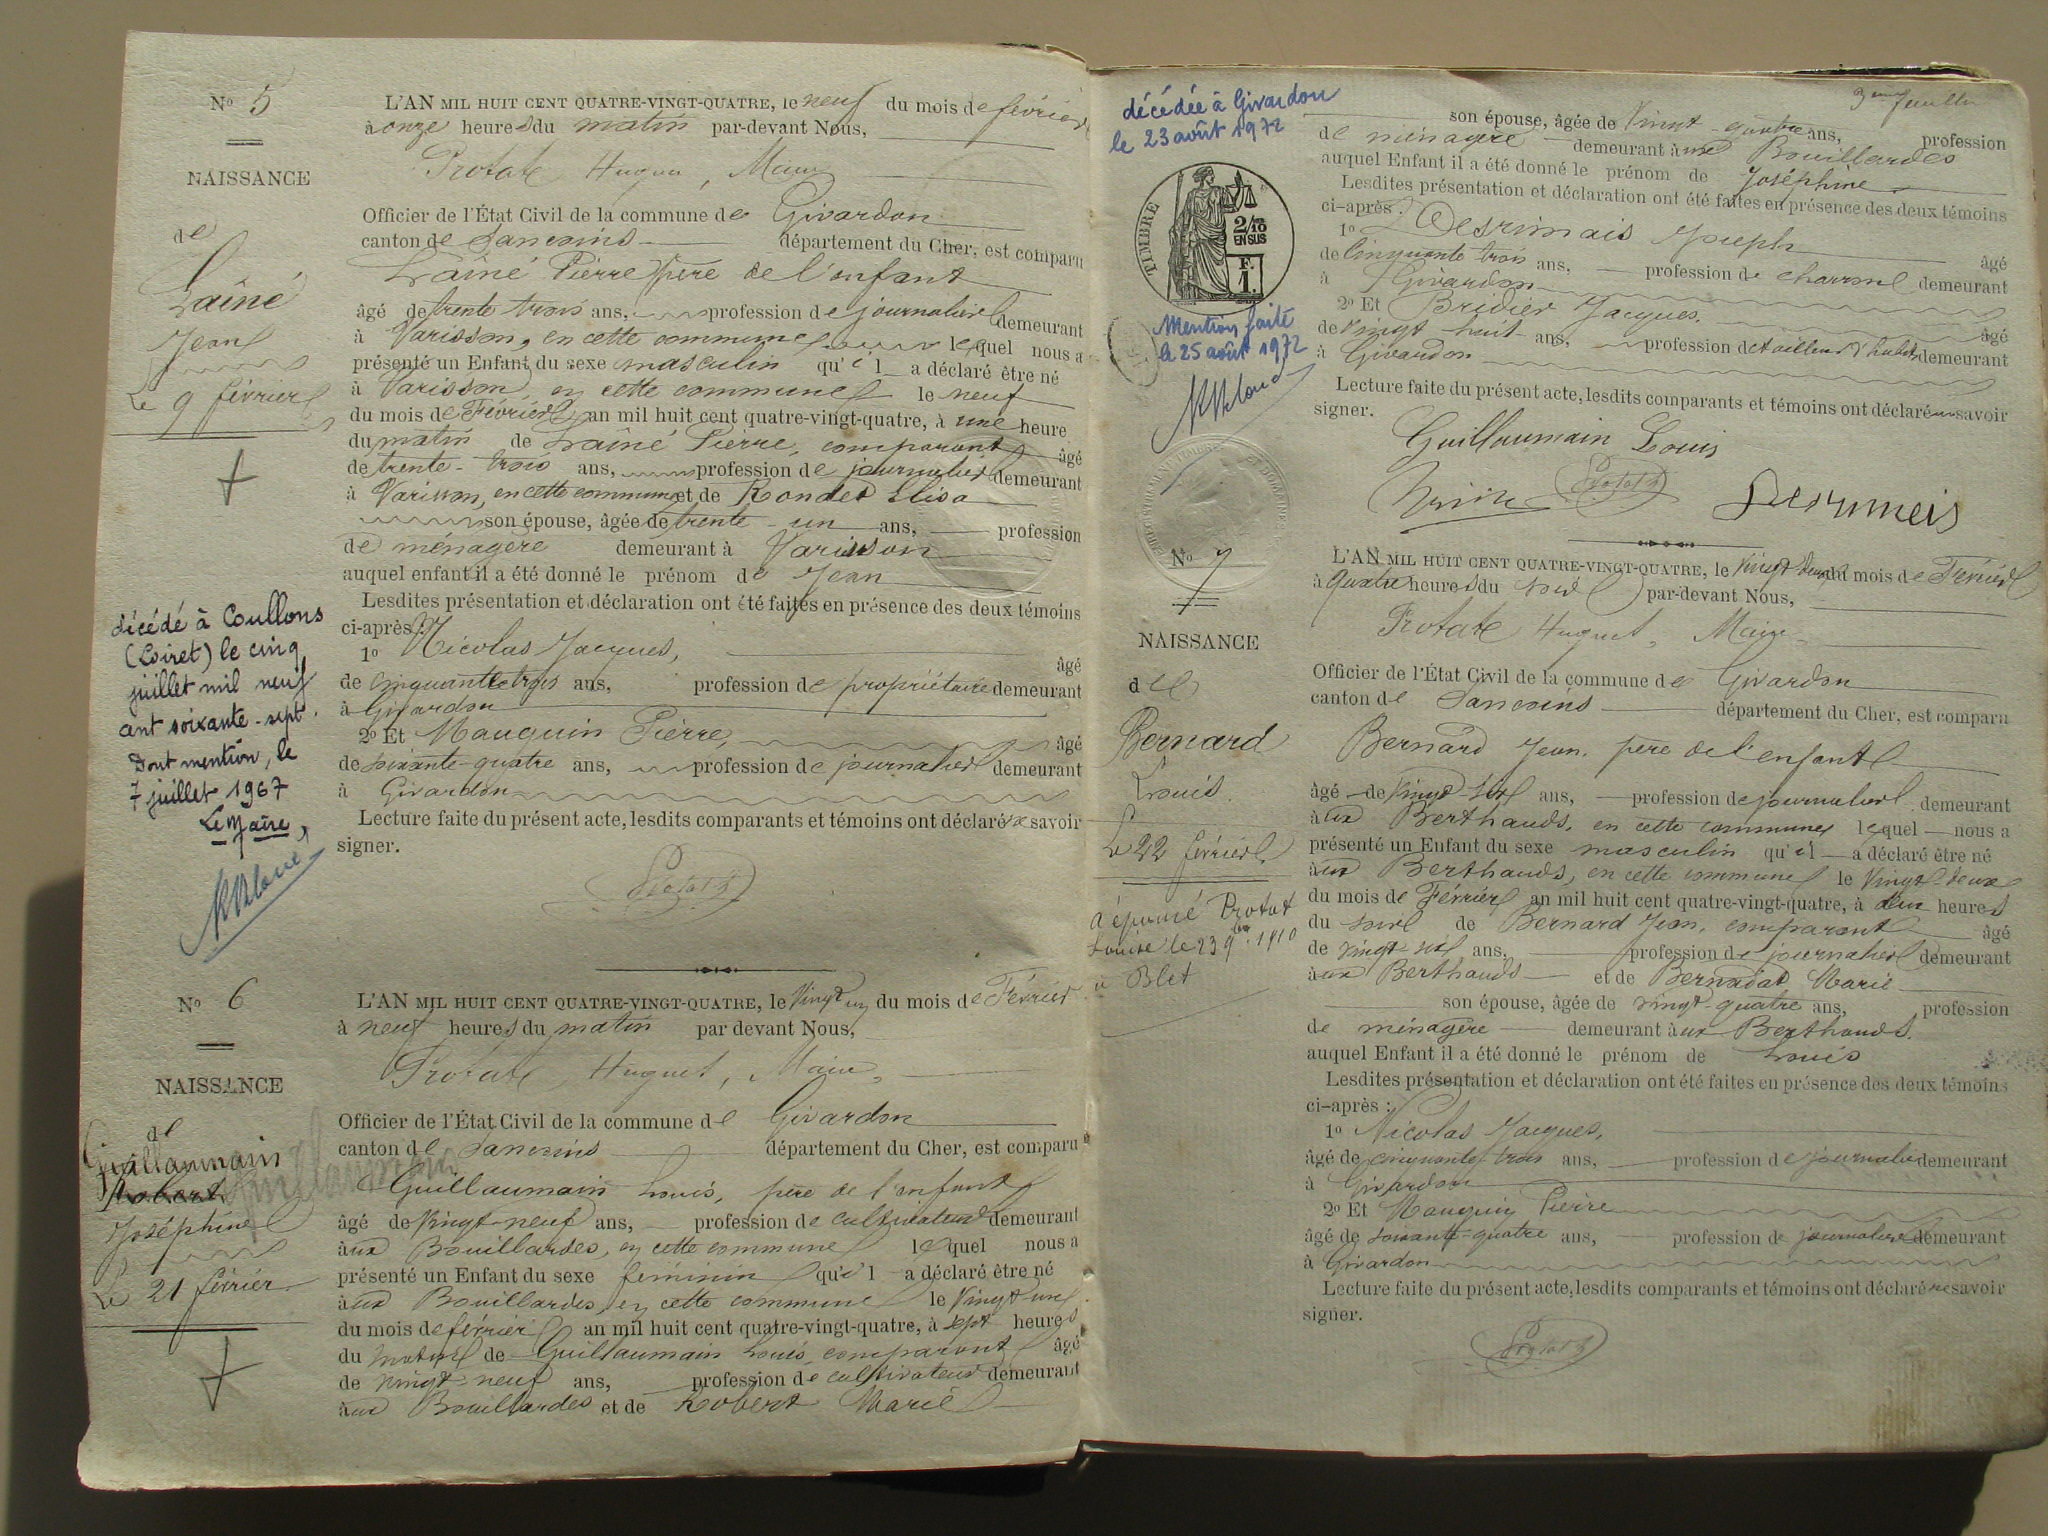 No 5
NAISSANCE
de
Laîné
Jean
Le 9 février
décédé à Coullons
(Loiret) le cinq
juillet mil neuf
cent soixante-sept.
Dont mention, le
7 juillet 1967
Le Maire,
L'AN MIL HUIT CENT QUATRE-VINGT-QUATRE, le neuf du mois de février
à onze heures du matin par-devant Nous,
Protat Huguet, Maire
Officier de l'État Civil de la commune de Givardon
canton de Sancoins département du Cher, est comparu
Laîné Pierre père de l'enfant
âgé de trente trois ans, profession de journalier demeurant
à Varisson, en cette commune lequel nous a
présenté un Enfant du sexe masculin qu'il a déclaré être né
à Varisson, en cette commune le neuf
du mois de Février an mil huit cent quatre-vingt-quatre, à une heure
du matin de Laîné Pierre, comparant âgé
de trente-trois ans, profession de journalier demeurant
à Varisson, en cette commune et de Rondet Elisa
son épouse, âgée de trente-un ans, profession
de ménagère demeurant à Varisson
auquel enfant il a été donné le prénom de Jean
Lesdites présentation et déclaration ont été faites en présence des deux témoins
ci-après :
1o Nicolas Jacques, âgé
de cinquante trois ans, profession de propriétaire demeurant
à Givardon
2o Et Mauguin Pierre, âgé
de soixante-quatre ans, profession de journalier demeurant
à Givardon
Lecture faite du présent acte, lesdits comparants et témoins ont déclaré ne savoir
signer.
Protat
No 6
NAISSANCE
de
Guillaumain
Robert Guillaumain
Joséphine
Le 21 février
L'AN MIL HUIT CENT QUATRE-VINGT-QUATRE, le Vingt un du mois de Février
à neuf heures du matin par devant Nous,
Protat Huguet, Maire,
Officier de l'État Civil de la commune de Givardon
canton de Sancoins département du Cher, est comparu
Guillaumain Louis, père de l'enfant
âgé de Vingt-neuf ans, profession de cultivateur demeurant
aux Bouillardes, en cette commune lequel nous a
présenté un Enfant du sexe féminin qu'il a déclaré être né
aux Bouillardes, en cette commune le Vingt-un
du mois de février an mil huit cent quatre-vingt-quatre, à sept heures
du matin de Guillaumain Louis, comparant âgé
de vingt-neuf ans, profession de cultivateur demeurant
aux Bouillardes et de Robert Marie
décédée à Givardon
le 23 août 1972
TIMBRE
2/10
EN SUS
F.
1.
Mention faite
le 25 août 1972
3eme feuille
son épouse, âgée de Vingt-quatre ans, profession
de ménagère demeurant aux Bouillardes
auquel Enfant il a été donné le prénom de Joséphine
Lesdites présentation et déclaration ont été faites en présence des deux témoins
ci-après :
1o Desrimais Joseph âgé
de cinquante trois ans, profession de charron demeurant
à Givardon
2o Et Bridier Jacques. âgé
de vingt huit ans, profession de tailleur d'habits demeurant
à Givardon
Lecture faite du présent acte, lesdits comparants et témoins ont déclaré savoir
signer.
Guillaumain Louis
Protat
No 7
NAISSANCE
de
Bernard
Louis.
Le 22 février
a épousé Protat
Louise le 23 9bre 1910
à Blet
L'AN MIL HUIT CENT QUATRE-VINGT-QUATRE, le Vingt deux du mois de Février
à Quatre heures du soir par-devant Nous,
Protat Huguet, Maire
Officier de l'État Civil de la commune de Givardon
canton de Sancoins département du Cher, est comparu
Bernard Jean, père de l'enfant
âgé de Vingt-six ans, profession de journalier demeurant
aux Berthauds, en cette commune lequel nous a
présenté un Enfant du sexe masculin qu'il a déclaré être né
aux Berthauds, en cette commune le Vingt-deux
du mois de Février an mil huit cent quatre-vingt-quatre, à deux heures
du soir de Bernard Jean, comparant âgé
de vingt-six ans, profession de journalier demeurant
aux Berthauds et de Bernadat Marie
son épouse, âgée de vingt-quatre ans, profession
de ménagère demeurant aux Berthauds.
auquel Enfant il a été donné le prénom de Louis
Lesdites présentation et déclaration ont été faites en présence des deux témoins
ci-après :
1o Nicolas Jacques,
âgé de cinquante trois ans, profession de journalier demeurant
à Givardon
2o Et Mauguin Pierre
âgé de soixante-quatre ans, profession de journalier demeurant
à Givardon
Lecture faite du présent acte, lesdits comparants et témoins ont déclaré ne savoir
signer.
Protat